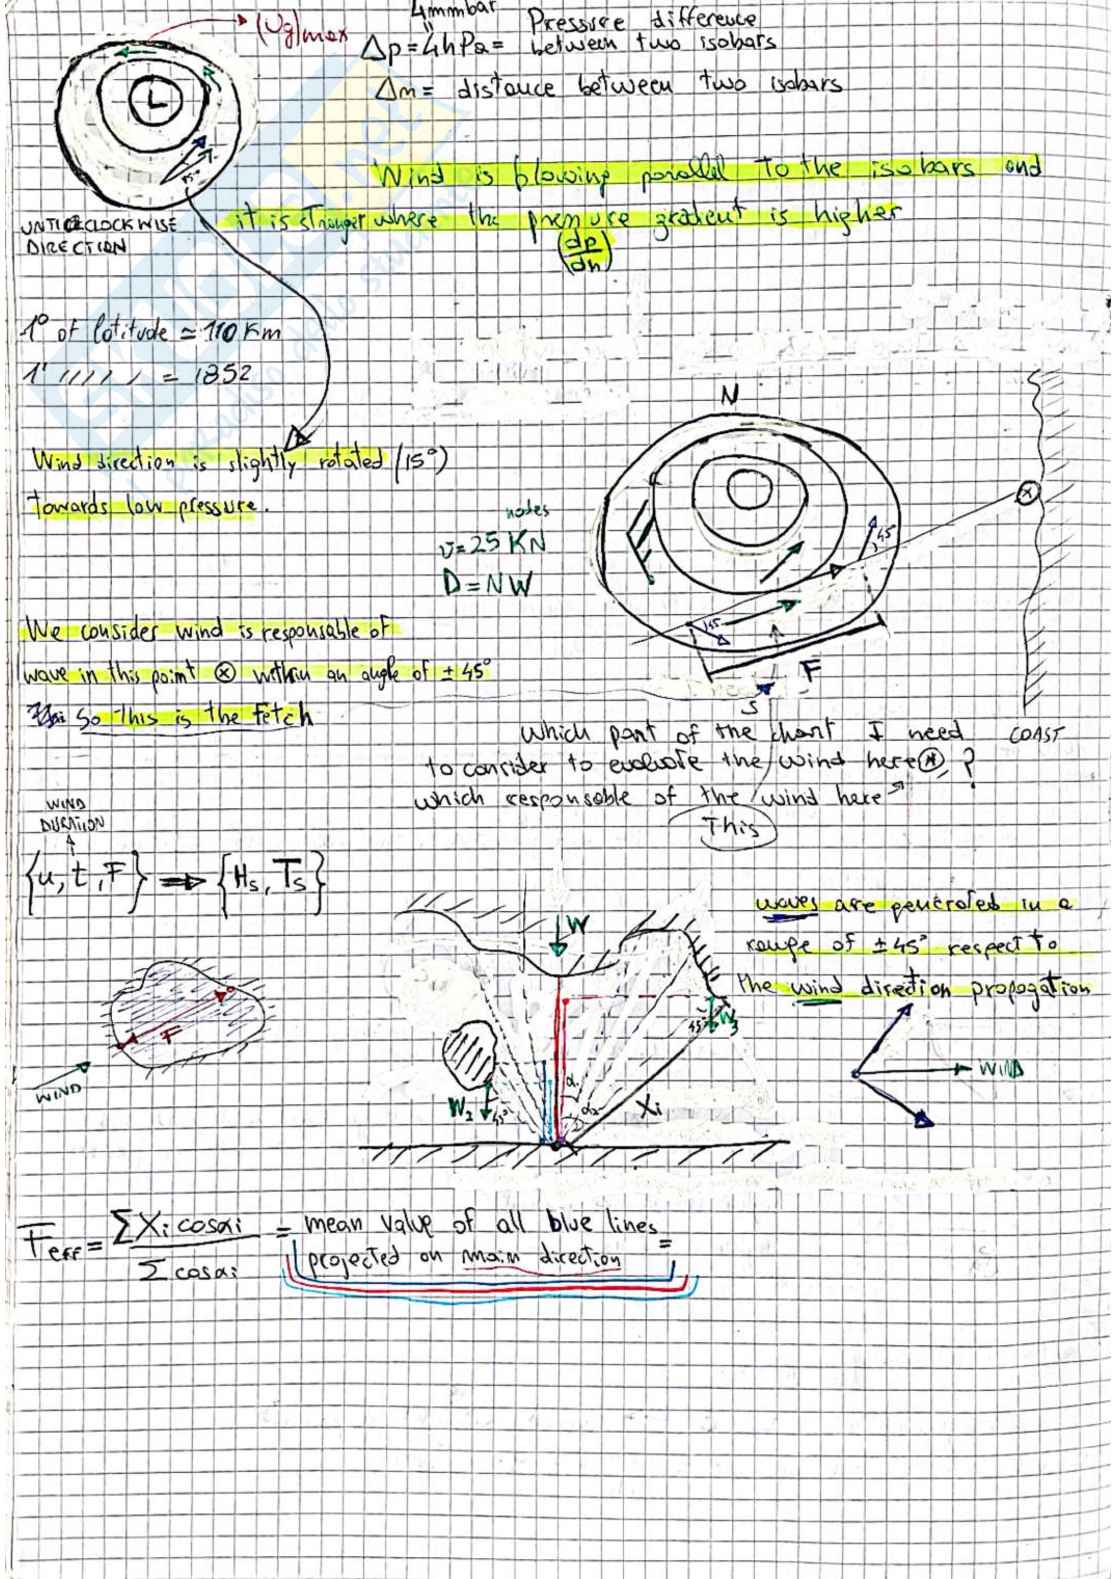 4mmbar
(Ug)max
Δp = 4hPa = Pressure difference between two isobars
Δn = distance between two isobars
Wind is blowing parallel to the isobars and
it is stronger where the pressure gradient is higher
(dp/dn)
CLOCKWISE
DIRECTION
L
15°
1° of latitude ≃ 110 Km
1' ///// = 1852
N
Wind direction is slightly rotated (15°)
towards low pressure.
nodes
v=25 KN
D=NW
45°
45°
F
S
We consider wind is responsable of
wave in this point ⊗ within an angle of ±45°
So this is the fetch
COAST
which part of the chart I need
to consider to evaluate the wind here ⊗ ?
which responsable of the wind here
This
WIND
DURATION
{u, t, F} ⇒ {Hs, Ts}
W
waves are generated in a
range of ±45° respect to
the wind direction propagation
F
WIND
W2
45°
45°
W3
Xi
WIND
Feff = ΣXi cosαi / Σcosαi = mean value of all blue lines projected on main direction =